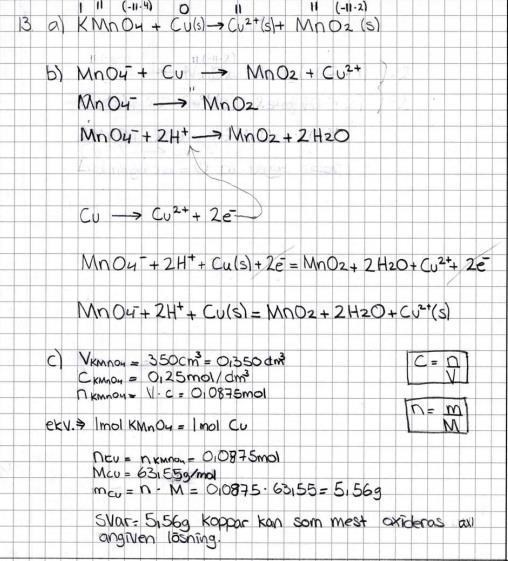 I II (-II·4) 0 II II (-II·2)
13 a) KMnO4 + Cu(s) → Cu²⁺(s) + MnO2 (s)
b) MnO4⁻ + Cu → MnO2 + Cu²⁺
MnO4⁻ → MnO2
MnO4⁻ + 2H⁺ → MnO2 + 2H2O
Cu → Cu²⁺ + 2e⁻
MnO4⁻ + 2H⁺ + Cu(s) + 2e⁻ = MnO2 + 2H2O + Cu²⁺ + 2e⁻
MnO4⁻ + 2H⁺ + Cu(s) = MnO2 + 2H2O + Cu²⁺(s)
c) VKMnO4 = 350cm³ = 0,350dm³
C = n/V
CKMnO4 = 0,25mol/dm³
nKMnO4 = V·c = 0,0875mol
n = m/M
ekv.⇒ 1mol KMnO4 = 1mol Cu
nCu = nKMnO4 = 0,0875mol
MCu = 63,55g/mol
mCu = n · M = 0,0875 · 63,55 = 5,56g
Svar: 5,56g koppar kan som mest oxideras av
angiven lösning.